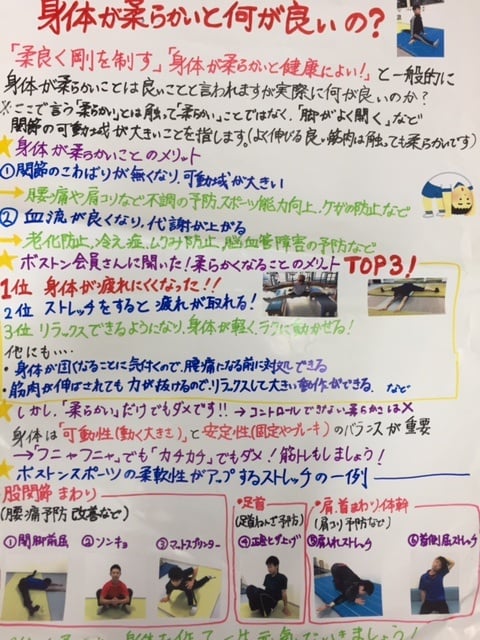 身体が柔らかいと何が良いの?
「柔良く剛を制す」「身体が柔らかいと健康によい!」と一般的に
身体が柔らかいことは良いことと言われますが実際に何が良いのか?
※ここで言う「柔らかい」とは触って「柔らかい」ことではなく、「脚がよく開く」など
関節の可動域が大きいことを指します。(よく伸びる良い筋肉は触っても柔らかいです)
★身体が柔らかいことのメリット
①関節のこわばりが無くなり、可動域が大きい
→腰痛や肩コリなど不調の予防、スポーツ能力向上、ケガの防止など
②血流が良くなり、代謝が上がる
→老化防止、冷え症、ムクミ防止、脳血管障害の予防など
★ボストン会員さんに聞いた!柔らかくなることのメリットTOP3!
1位 身体が疲れにくくなった!!
2位 ストレッチをすると疲れが取れる!
3位 リラックスできるようになり、身体が軽く、ラクに動かせる!
他にも…
・身体が固くなることに気付くので、腰痛になる前に対処できる
・筋肉が伸ばされても力が抜けるので、リラックスして大きい動作ができる. など
★しかし、「柔らかい」だけでもダメです!! →コントロールできない柔らかさは×
身体は「可動性(動く大きさ)」と安定性(固定やブレーキ)のバランスが重要
→「フニャフニャ」でも「カチカチ」でもダメ!筋トレもしましょう!
★ボストンスポーツの柔軟性がアップするストレッチの一例
股関節まわり
(腰痛予防改善など)
①開脚前屈
②ソンキョ
③マットスプリンター
・足首
(足首ねんざ予防)
④正座ヒザ上げ
・肩、首まわり体幹
(肩コリ予防など)
⑤肩入れストレッチ
⑥首側屈ストレッチ